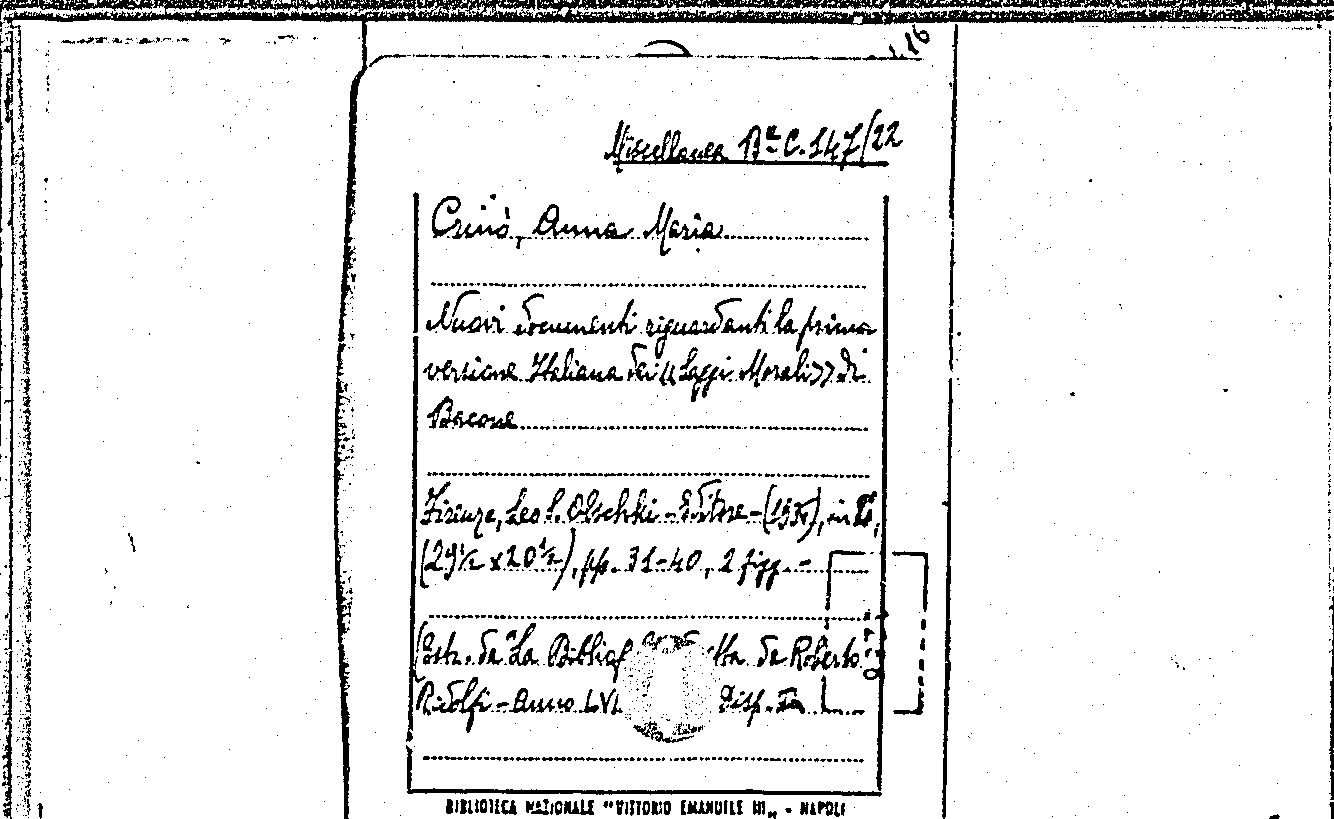 Miscellanea Bª C. 147/22
Crinò, Anna Maria
Nuovi documenti riguardanti la prima
versione Italiana dei << Saggi Morali >> di
Bacone
Firenze, Leo S. Olschki - Editore - in 8º,
(29½ x 20½), pp. 31-40, 2 figg. -
(Estr. da "La da Roberto
Ridolfi - Anno LVI Disp. Iª
BIBLIOTECA NAZIONALE "VITTORIO EMANUELE III„ - NAPOLI